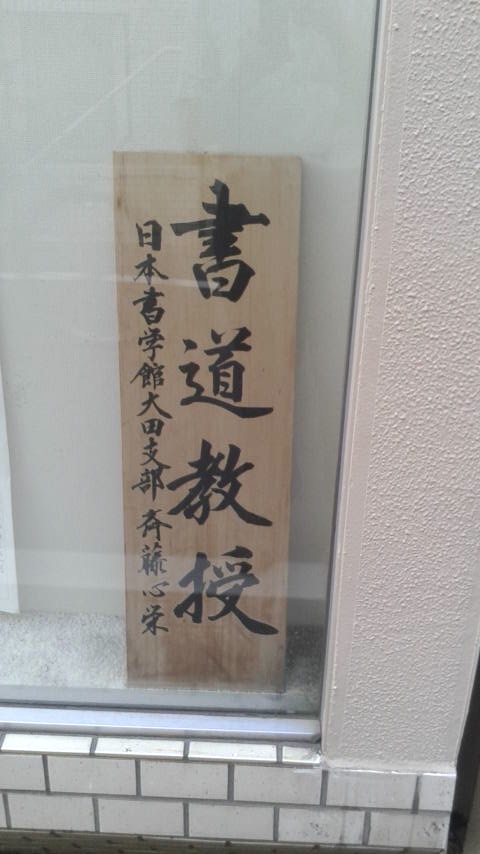 書道教授
日本書学館大田支部 斉藤心栄